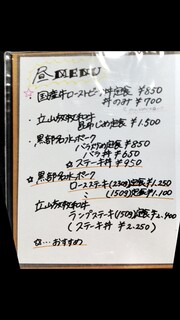 昼MENU
☆国産牛ローストビーフ丼定食 ¥850
丼のみ ¥700
・立山放牧和牛
定食 ¥1.500
・黒部名水ポーク
バラ焼定食 ¥850
バラ丼 ¥650
☆ステーキ丼 ¥950
☆黒部名水ポーク
ロースステーキ(230g)定食 ¥1.250
〃 (150g)定食 ¥1.100
立山放牧和牛
ランプステーキ(150g)定食 ¥2.400
(ステーキ丼 ¥2.250)
☆…おすすめ